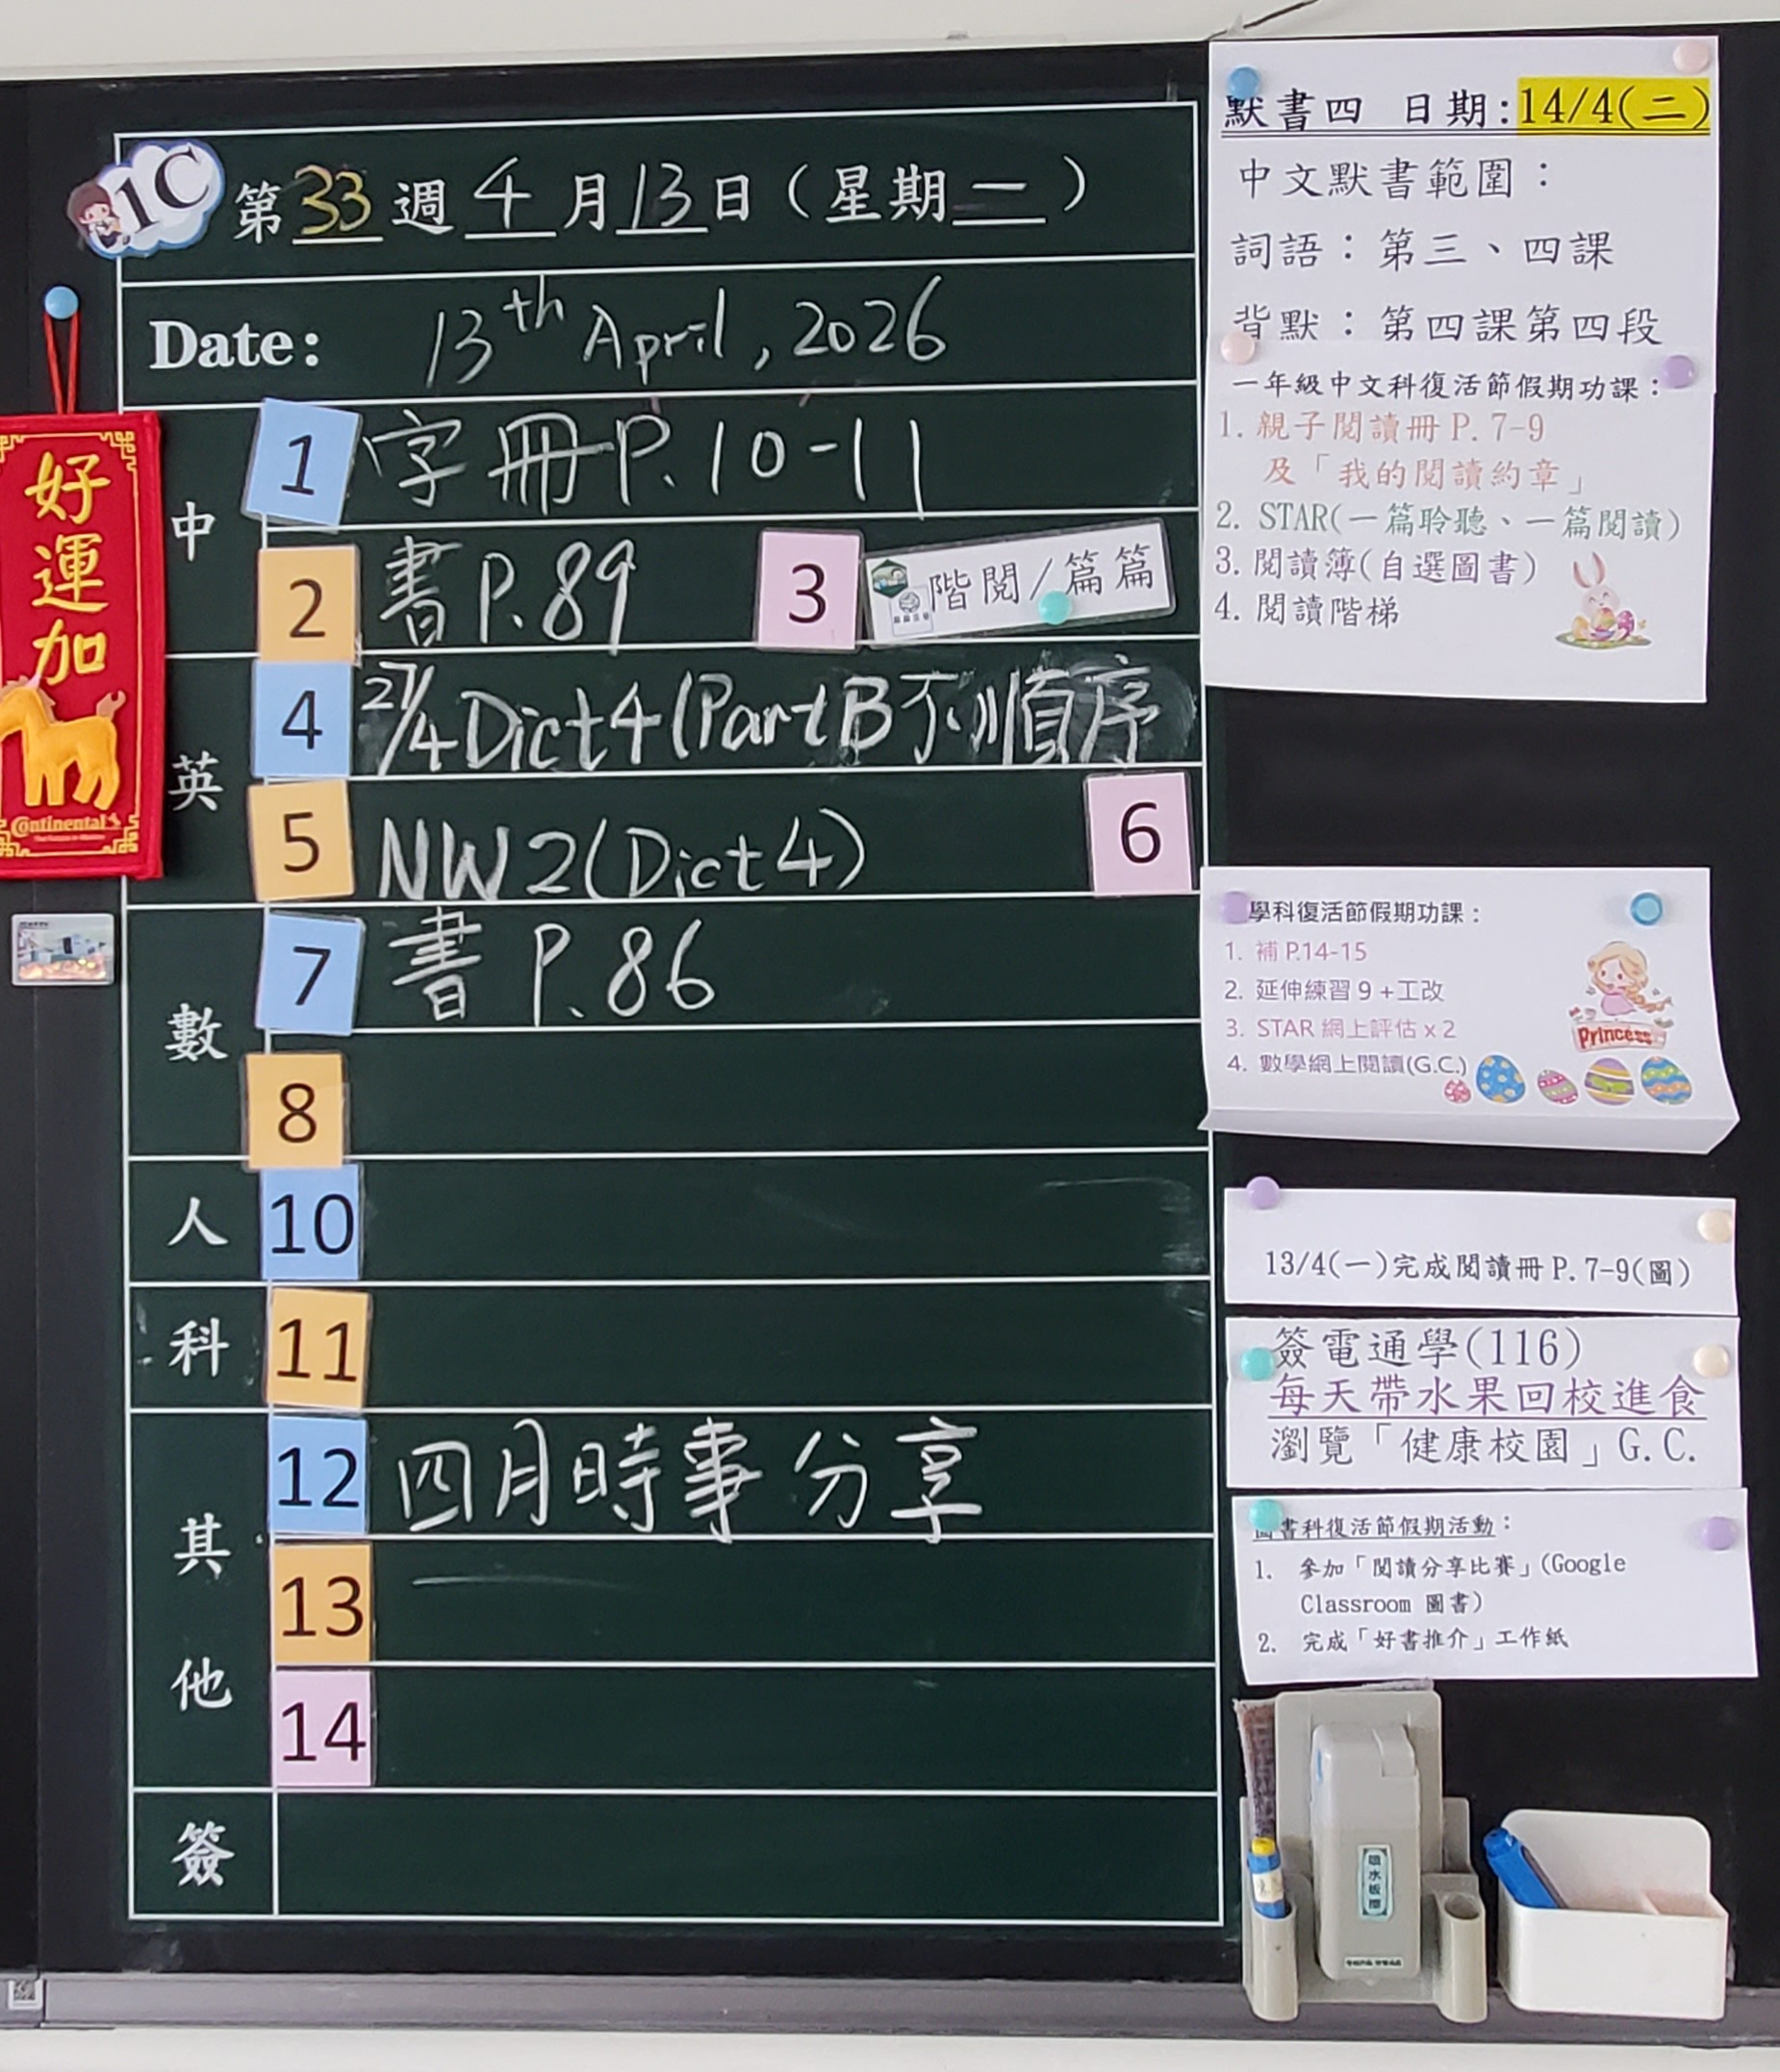 1C
第33週4月13日(星期一)
Date: 13th April, 2026
好運加
Continental
中
1 字冊P.10-11
2 書P.89 3 階閱/篇篇
英
4 27/4 Dict4(PartB不順序
5 NW2(Dict4) 6
數
7 書P.86
8
人 10
科 11
其他
12 四月時事分享
13
14
簽
默書四 日期:14/4(二)
中文默書範圍:
詞語:第三、四課
背默:第四課第四段
一年級中文科復活節假期功課:
1. 親子閱讀冊P.7-9
及「我的閱讀約章」
2. STAR(一篇聆聽、一篇閱讀)
3. 閱讀簿(自選圖書)
4. 閱讀階梯
學科復活節假期功課:
1. 補 P.14-15
2. 延伸練習 9 +工改
3. STAR 網上評估 x 2
4. 數學網上閱讀(G.C.)
Princess
13/4(一)完成閱讀冊P.7-9(圖)
簽電通學(116)
每天帶水果回校進食
瀏覽「健康校園」G.C.
圖書科復活節假期活動:
1. 參加「閱讀分享比賽」(Google
Classroom 圖書)
2. 完成「好書推介」工作紙
吸水板擦